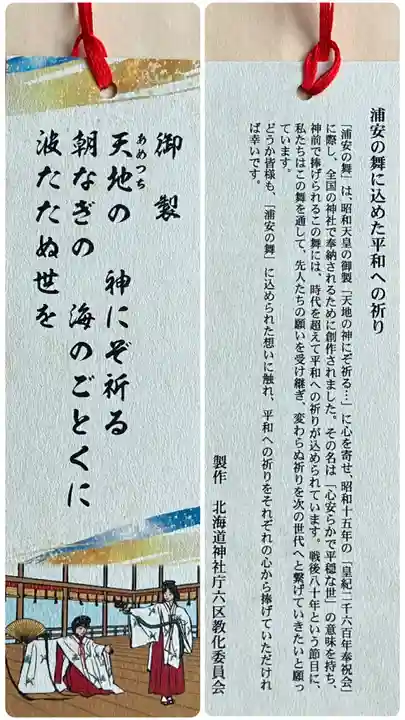 御製
あめつち
天地の 神にぞ祈る
朝なぎの 海のごとくに
波たたぬ世を
浦安の舞に込めた平和への祈り
「浦安の舞」は、昭和天皇の御製「天地の神にぞ祈る…」に心を寄せ、昭和十五年の「皇紀二千六百年奉祝会」
に際し、全国の神社で奉納されるために創作されました。その名は「心安らかで平穏な世」の意味を持ち、
神前で捧げられるこの舞には、時代を超えて平和への祈りが込められています。戦後八十年という節目に、
私たちはこの舞を通して、先人たちの願いを受け継ぎ、変わらぬ祈りを次の世代へと繋げていきたいと願っ
ています。
どうか皆様も、「浦安の舞」に込められた想いに触れ、平和への祈りをそれぞれの心から捧げていただけれ
ば幸いです。
製作 北海道神社庁六区教化委員会